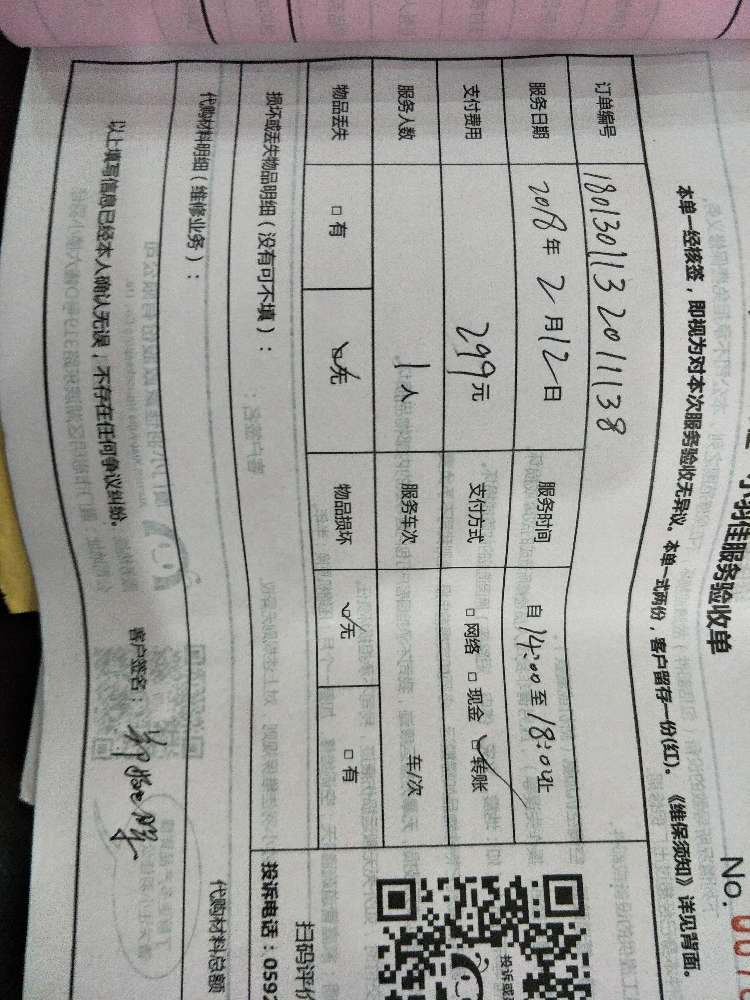 羽佳服务验收单
No.
本单一经核签，即视为对本次服务验收无异议。本单一式两份，客户留存一份(红)。《维保须知》详见背面。
订单编号 1801301132011138
服务日期 2018年2月12日 服务时间 自14:00至18:00止
支付费用 299元 支付方式 □网络 □现金 ☑转账
服务人数 1人 服务车次 车/次
物品丢失 □有 ☑无 物品损坏 ☑无 □有
损坏或丢失物品明细（没有可不填）：
代购材料明细（维修业务）： 代购材料总额
以上填写信息已经本人确认无误，不存在任何争议纠纷。 客户签名：
投诉或
扫码评价
投诉电话：0592